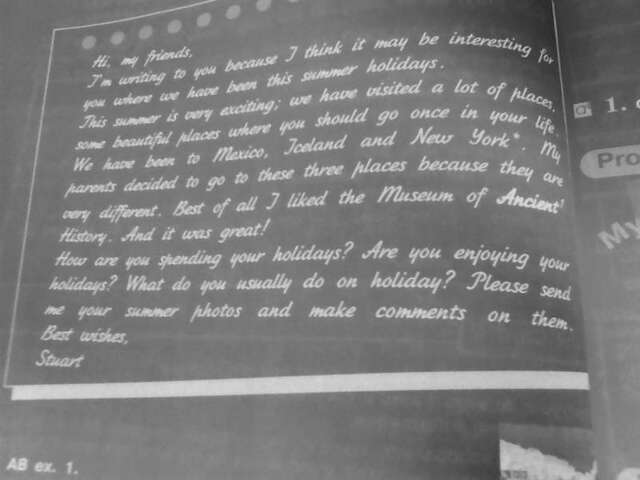 Hi, my friends,
I'm writing to you because I think it may be interesting for
you where we have been this summer holidays.
This summer is very exciting; we have visited a lot of places,
some beautiful places where you should go once in your life.
We have been to Mexico, Iceland and New York*. My
parents decided to go to these three places because they are
very different. Best of all I liked the Museum of Ancient¹
History. And it was great!
How are you spending your holidays? Are you enjoying your
holidays? What do you usually do on holiday? Please send
me your summer photos and make comments on them.
Best wishes,
Stuart
AB ex. 1.
1.
Pro
My